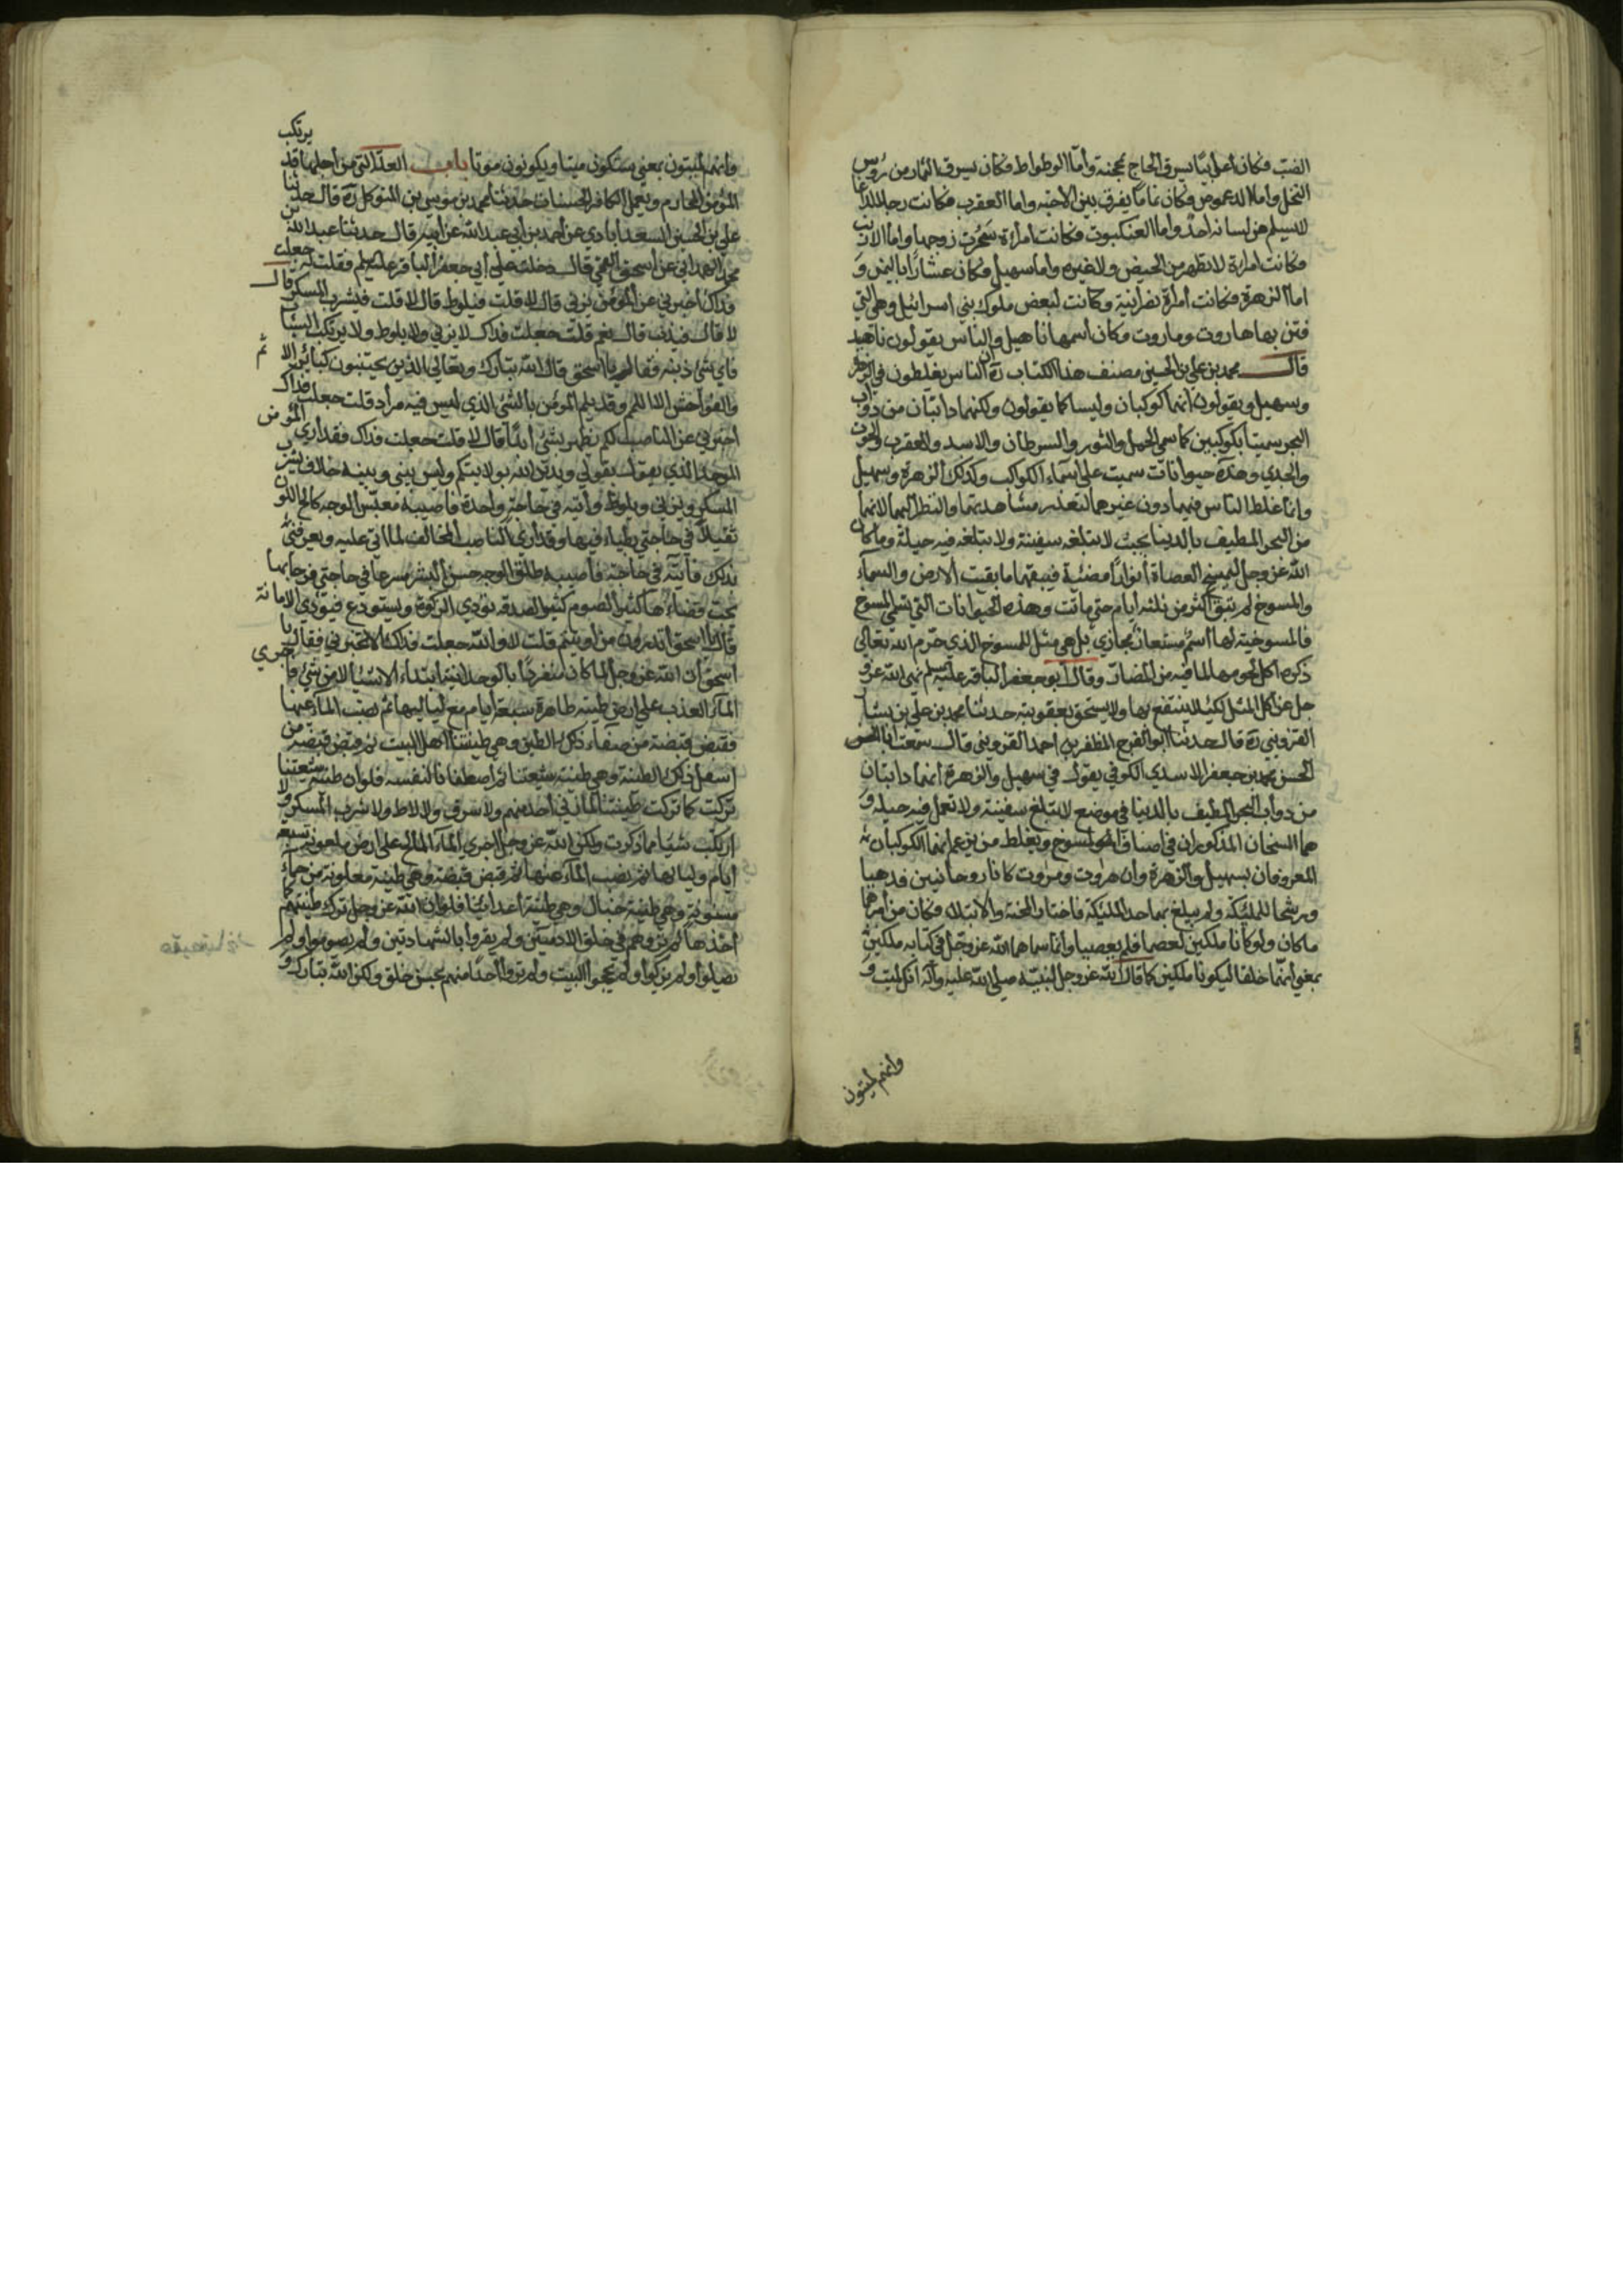 الضب فكان أعرابيا يسرق الحاج بمحجنه وأما الوطواط فكان يسرق الثمار من رؤس
النخل واما الدعموص فكان نماما يفرق بين الاحبة واما العقرب فكانت رجلا لذاعا
لا يسلم من لسانه احد واما العنكبوت فكانت امرأة سحرت زوجها واما الارنب
فكانت امرأة لا تطهر من الحيض ولا غيره واما سهيل فكان عشارا باليمن و
اما الزهرة فكانت امرأة نصرانية وكانت لبعض ملوك بني اسرائيل وهي التي
فتن بها هاروت وماروت وكان اسمها ناهيل والناس يقولون ناهيد
قال محمد بن علي بن الحسين مصنف هذا الكتاب ره ان الناس يغلطون في الزهرة
وسهيل ويقولون انهما كوكبان وليسا كما يقولون ولكنهما دابتان من دواب
البحر سميتا بكوكبين كما سمي الحمل والثور والسرطان والاسد والعقرب والحوت
والجدي وهذه حيوانات سميت على اسماء الكواكب وكذلك الزهرة وسهيل
وانما غلط الناس فيهما دون غيرهما لتعذر مشاهدتهما والنظر اليهما لانهما
من البحر المطيف بالدنيا بحيث لا تبلغه سفينة ولا تبلغه فيه حيلة وما كان
الله عز وجل ليمسخ العصاة أنوارا مضيئة فيبقيهما ما بقيت الارض والسماء
والمسوخ لم تبق اكثر من ثلثه ايام حتى ماتت وهذه الحيوانات التي تسمى المسوخ
فالمسوخية لها اسم مستعار مجازي بل هي مثل المسوخ الذي حرم الله تعالى
ذكره اكل لحومها لما فيه من المضار وقال ابو جعفر الباقر عليه السلم نهى الله عز و
جل عن اكل المثل لكيلا ينتفع بها ولا يستخف بعقوبته حدثنا محمد بن علي بن بشار
القزويني ره قال حدثنا ابو الفرج المظفر بن احمد القزويني قال سمعت ابا الحسن
الحسن محمد بن جعفر الاسدي الكوفي يقول في سهيل والزهرة انهما دابتان
من دواب البحر المطيف بالدنيا في موضع لا تبلغ سفينة ولا تعمل فيه حيلة و
هما المسخان المذكوران في اصناف المسوخ ويغلط من يزعم انهما الكوكبان
المعروفان بسهيل والزهرة وان هروت ومروت كانا روحانيين قد هيئا
ورشحا للملئكة ولم يبلغ بهما حد الملئكة فاختارا المحنة والابتلاء وكان من أمرهما
ما كان ولو كانا ملكين لعصما فلم يعصيا وانما سماهما الله عز وجل في كتابه ملكين
بمعنى انهما خلقا ليكونا ملكين كما قال الله عز وجل لنبيه صلى الله عليه وآله انك ميت و
وانهم ميتون
وانهم ميتون بمعنى ستكون ميتا ويكونون موتا باب العلة التي من أجلها قد يرتكب
المؤمن المحارم ويعمل الكافر الحسنات حدثنا محمد بن موسى بن المتوكل ره قال حدثنا
علي بن الحسين السعدابادي عن أحمد بن أبي عبد الله عن أبيه قال حدثنا عبد الله بن
محمد الهمداني عن اسحق القمي قال دخلت على أبي جعفر الباقر عليه السلم فقلت له جعلت
فداك اخبرني عن المؤمن يزني قال لا قلت فيلوط قال لا قلت فيشرب المسكر قال
لا قال فيذنب قال نعم قلت جعلت فداك لا يزني ولا يلوط ولا يرتكب السيئات
فاي شئ ذنبه فقال يا اسحق قال الله تبارك وتعالى الذين يجتنبون كبائر الاثم
والفواحش الا اللمم وقد يلم المؤمن بالشئ الذي ليس فيه مراد قلت جعلت فداك
اخبرني عن الناصب لكم يطهر بشئ أبدا قال لا قلت جعلت فداك فقد أرى المؤمن
الموحد الذي يقول بقولي ويدين الله بولايتكم وليس بيني وبينه خلاف يشرب
المسكر ويزني ويلوط وأتيه في حاجة واحدة فاصيبه معبس الوجه كالح اللون
ثقيلا في حاجتي بطيئا فيها وقد أرى الناصب المخالف لما انا عليه ويعرفني
بذلك فآتيه في حاجة فاصيبه طلق الوجه حسن البشر مسرعا في حاجتي فرحا بها
يحب قضاءها كثير الصوم كثير الصدقة يؤدي الزكوة ويستودع فيؤدي الامانة
قال يا اسحق اتدرون من اين اوتيتم قلت لا والله جعلت فداك الا تخبرني فقال يا
اسحق ان الله عز وجل لما كان متفردا بالوحدانية ابتداء الاشياء لا من شئ فاجرى
الماء العذب على ارض طيبة طاهرة سبعة أيام مع لياليها ثم نضب الماء عنها
فقبض قبضة من صفاء ذلك الطين وهي طينتنا أهل البيت ثم قبض قبضة من
اسفل ذلك الطينة وهي طينة شيعتنا ثم اصطفانا لنفسه فلو ان طينة شيعتنا
تركت كما تركت طينتنا لما زنى أحد منهم ولا سرق ولا لاط ولا شرب المسكر ولا
ارتكب شيئا مما ذكرت ولكن الله عز وجل اجرى الماء المالح على ارض ملعونة سبعة
ايام ولياليها ثم نضب الماء عنها ثم قبض قبضة وهي طينة ملعونة من حماء
مسنون وهي طينة خبال وهي طينة أعدائنا فلو ان الله عز وجل ترك طينتهم كما
أخذها لم تروهم في خلق الادميين ولم يقروا بالشهادتين ولم يصوموا ولم
يصلوا ولم يزكوا ولم يحجوا البيت ولم تروا أحدا منهم بحسن خلق ولكن الله تبارك و